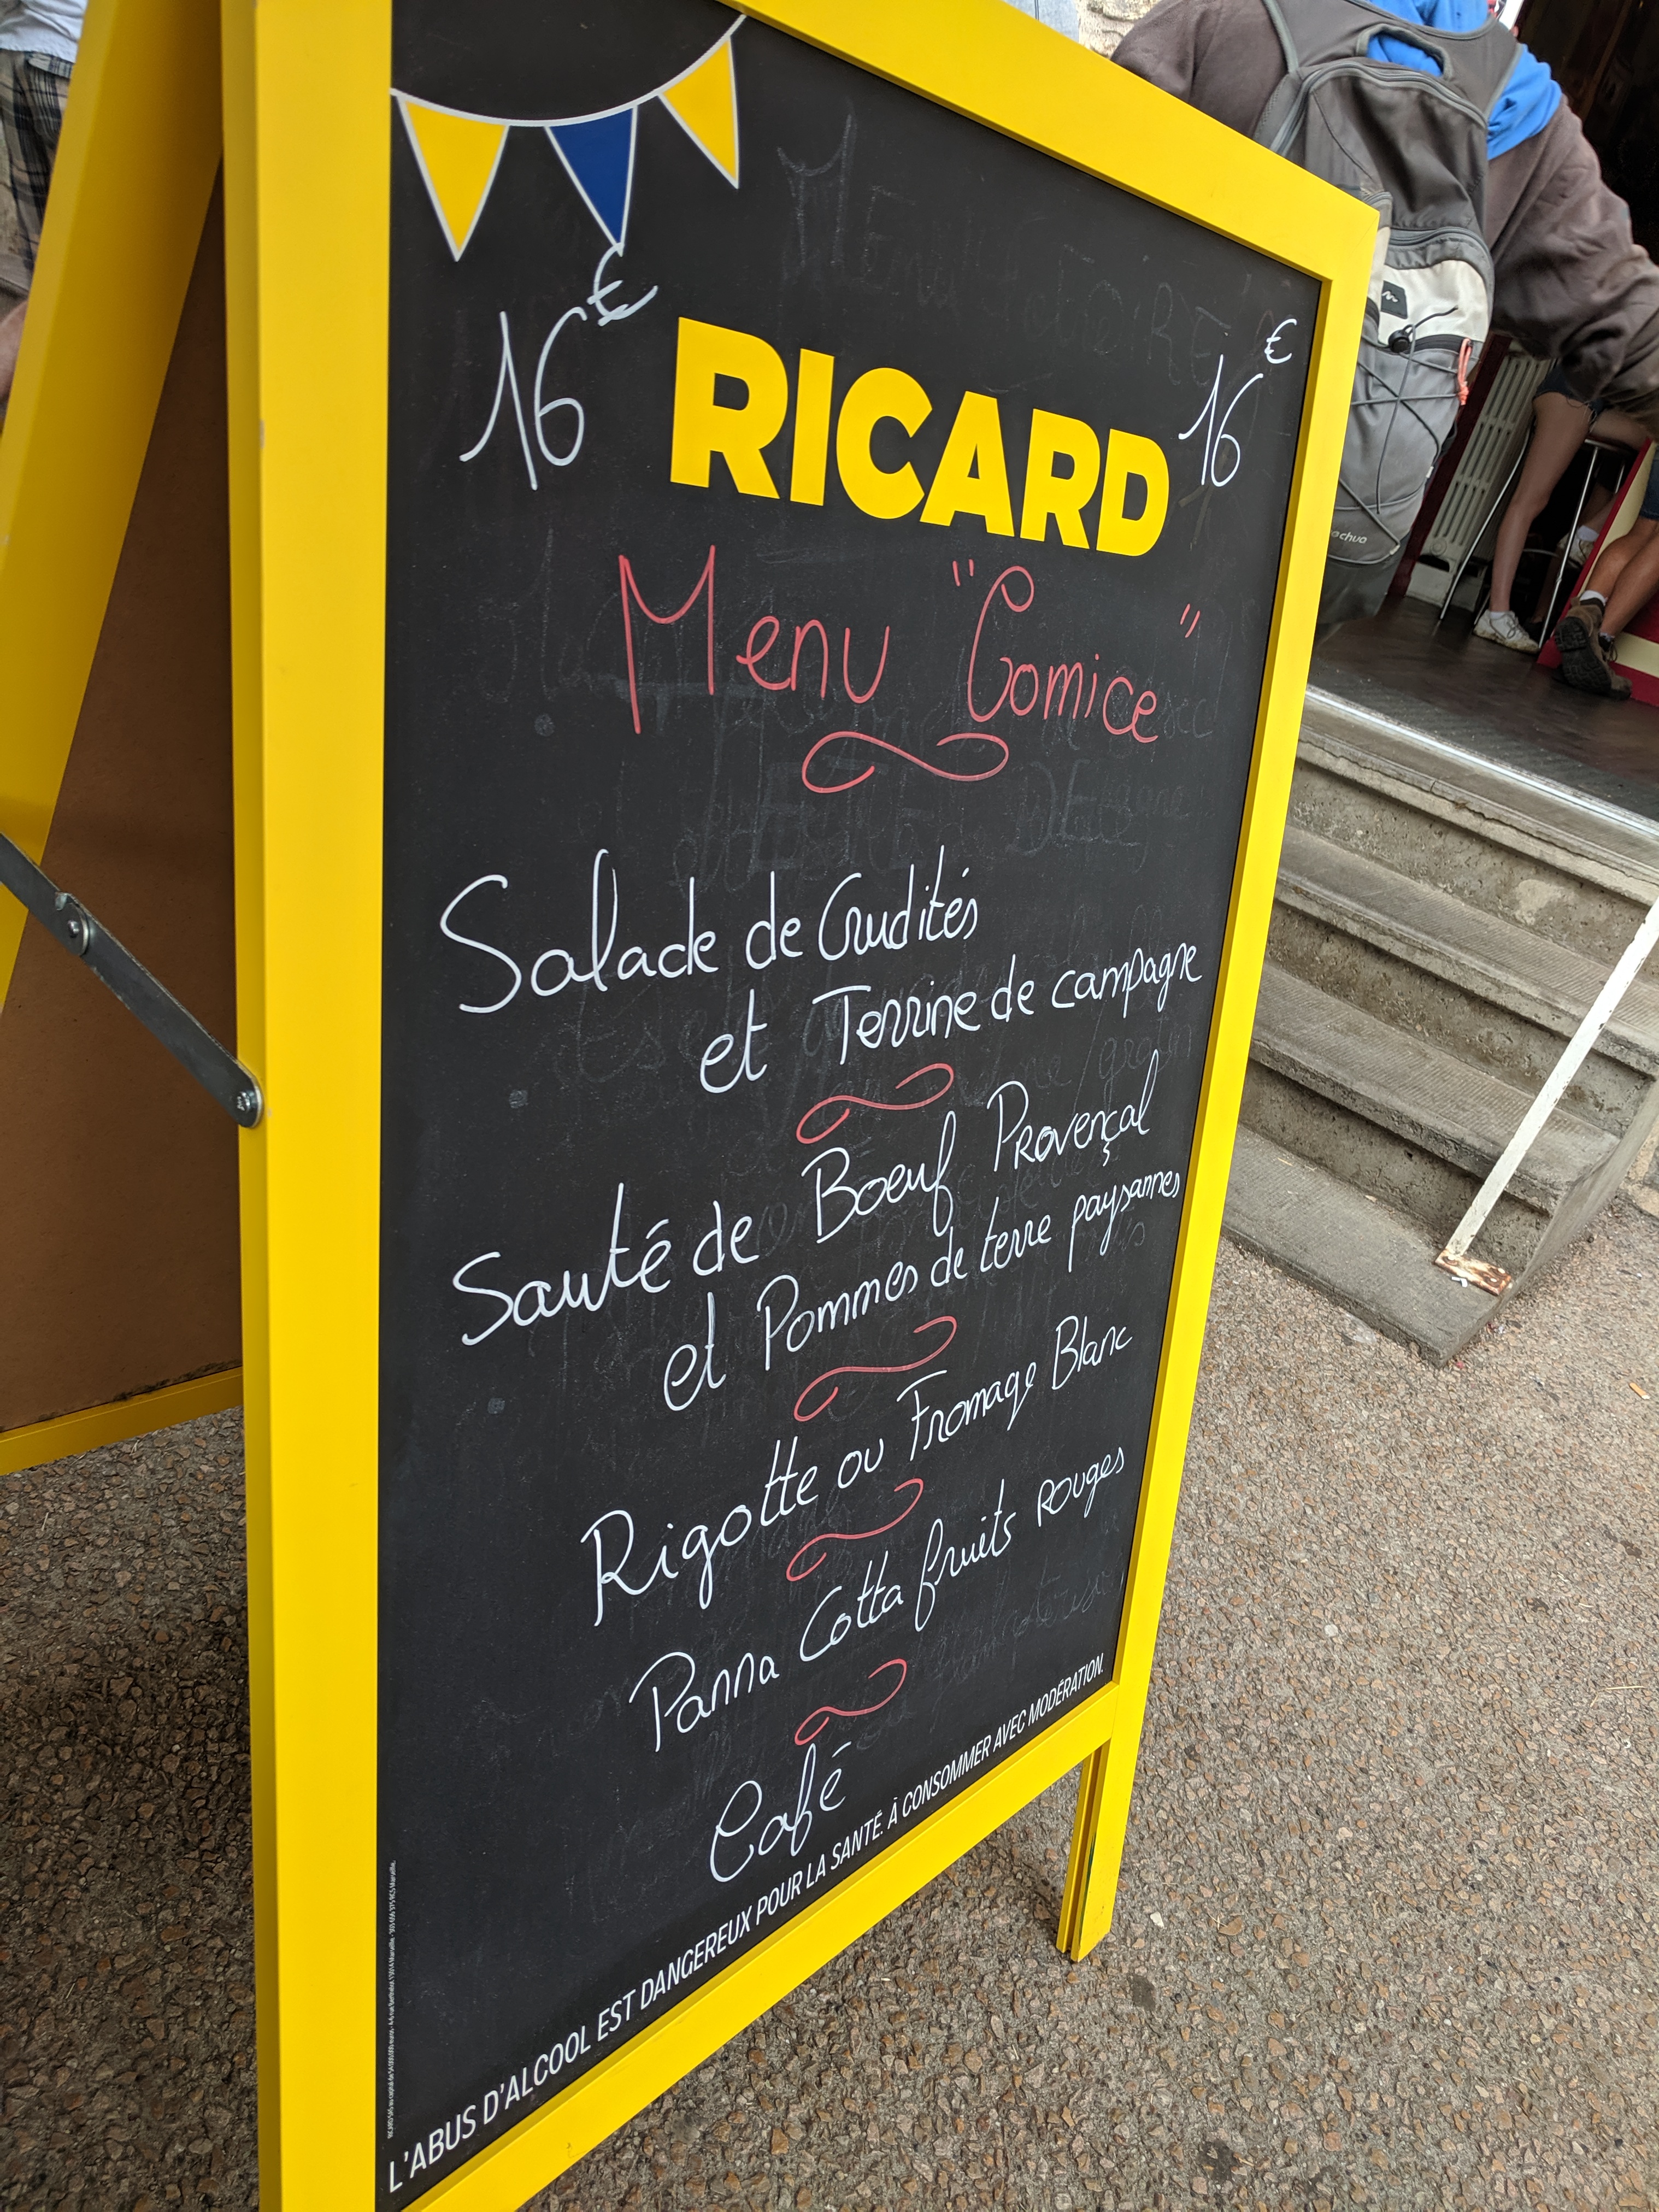 16€ RICARD 16€
Menu "Comice"
Salade de Crudités
et Terrine de campagne
Sauté de Boeuf Provençal
et Pommes de terre paysannes
Rigotte ou Fromage Blanc
Panna Cotta fruits rouges
Café
L'ABUS D'ALCOOL EST DANGEREUX POUR LA SANTÉ. À CONSOMMER AVEC MODÉRATION.